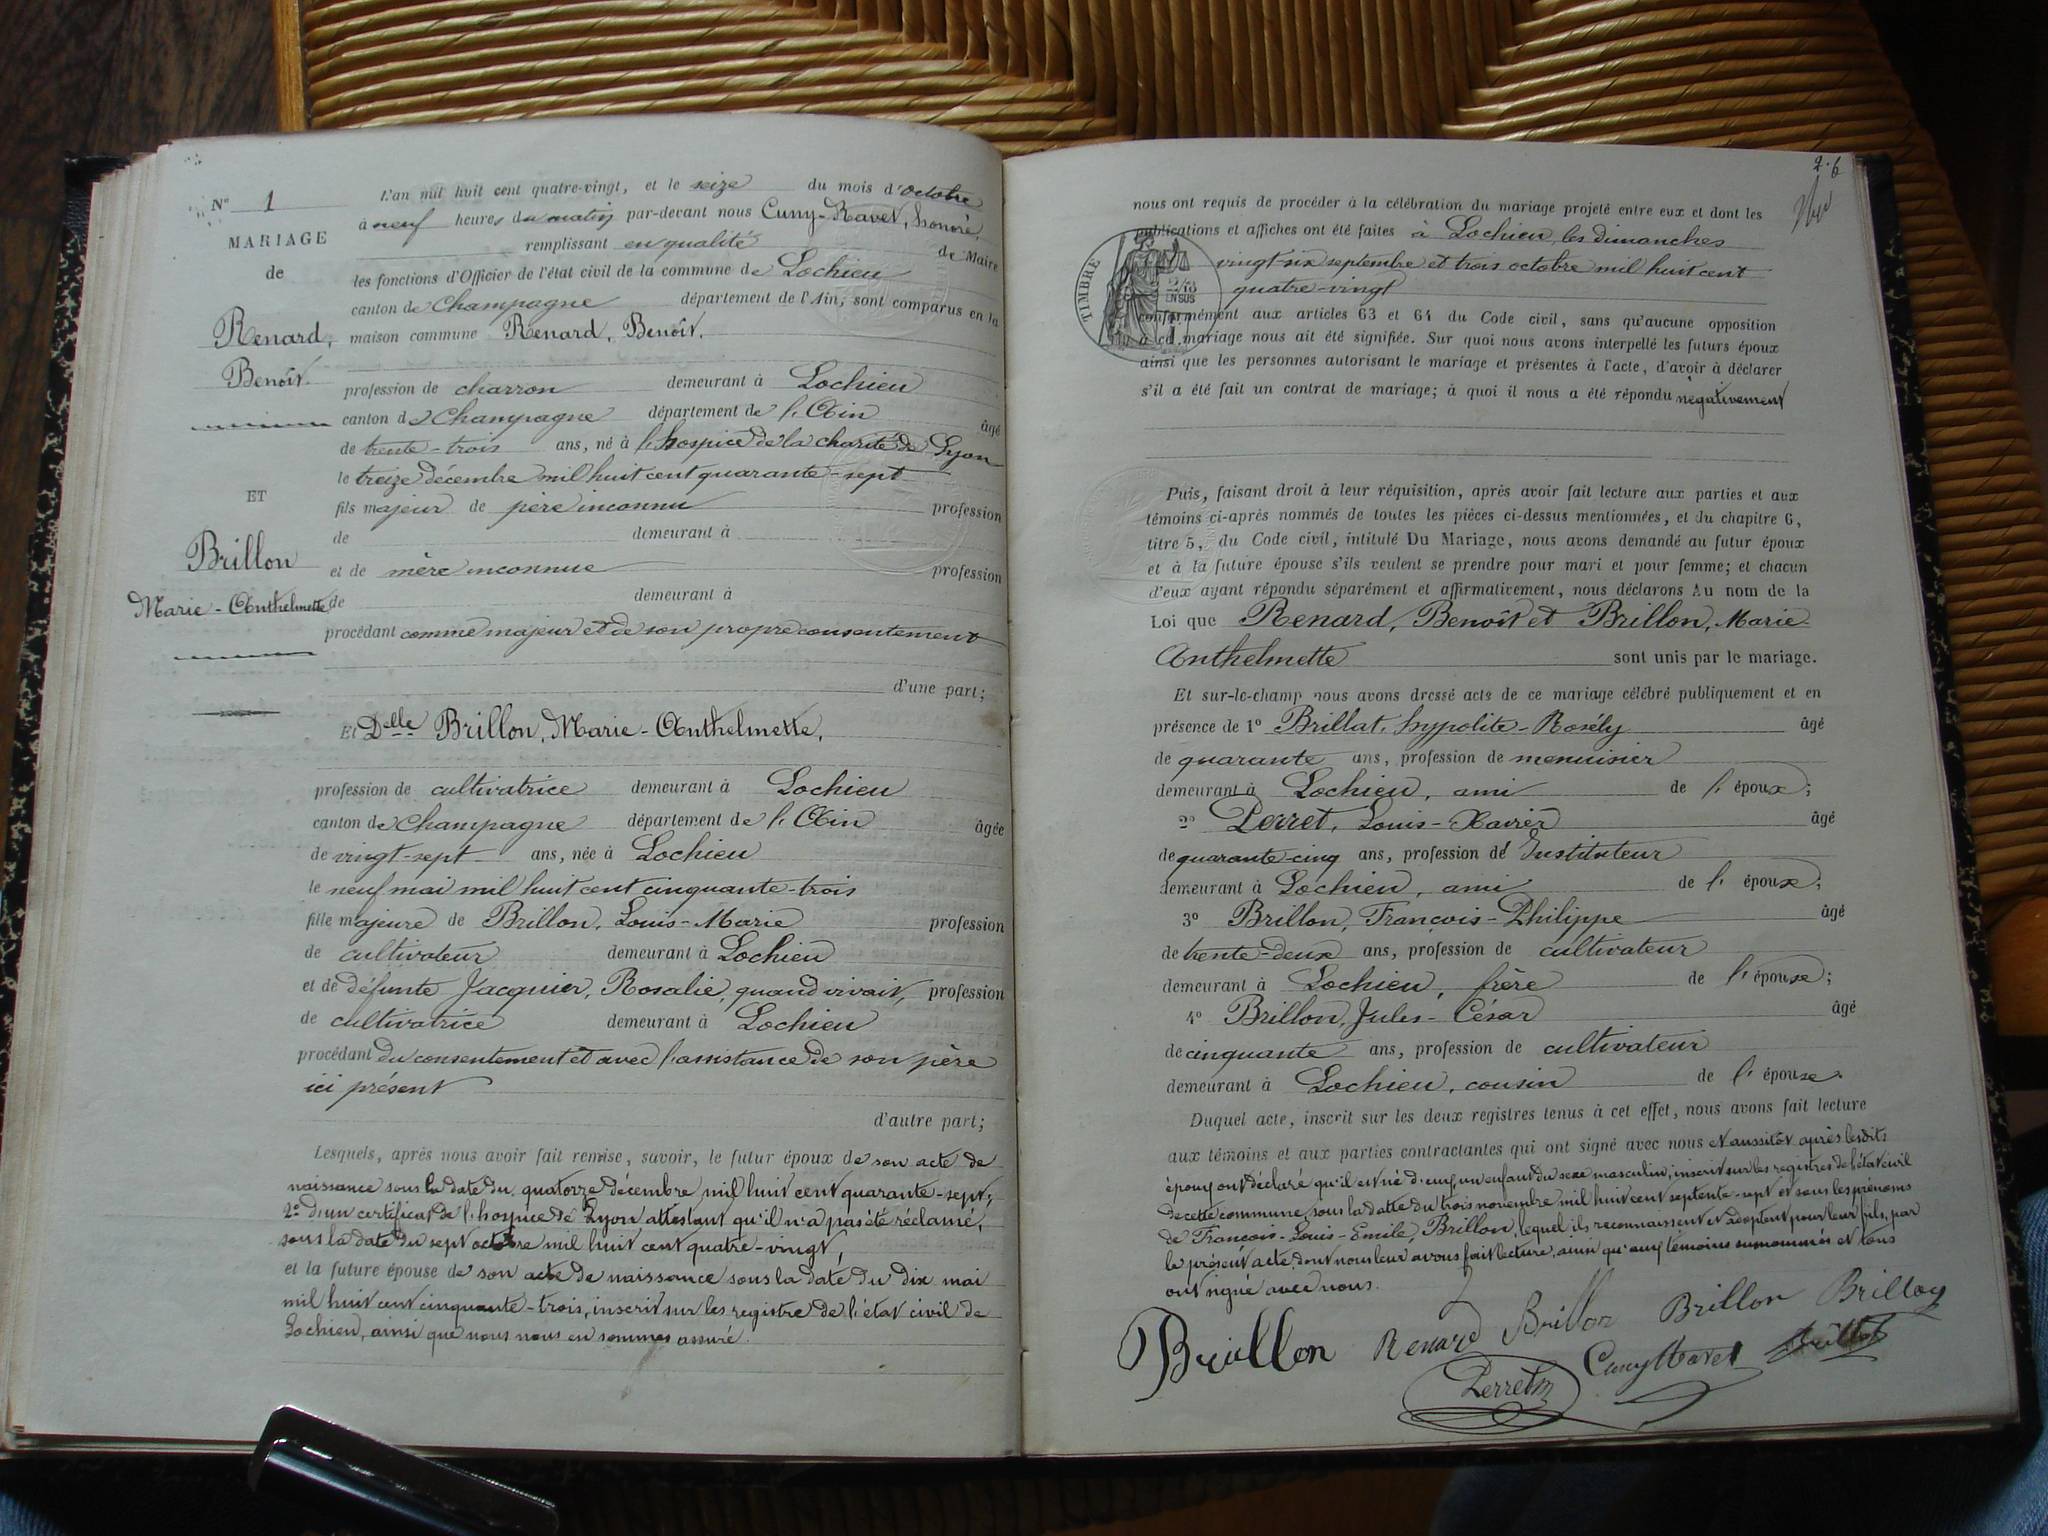 N° 1
MARIAGE
de
Renard,
Benoît.
ET
Brillon
Marie-Anthelmette
L'an mil huit cent quatre-vingt, et le seize du mois d'octobre
à neuf heures du matin par-devant nous Cuny-Ravet, honoré,
remplissant en qualité de Maire
les fonctions d'Officier de l'état civil de la commune de Lochieu
canton de Champagne département de l'Ain, sont comparus en la
maison commune Renard, Benoît.
profession de charron demeurant à Lochieu
canton de Champagne département de l'Ain âgé
de trente-trois ans, né à l'hospice de la charité de Lyon
le treize décembre mil huit cent quarante-sept
fils majeur de père inconnu profession
de demeurant à
et de mère inconnue profession
de demeurant à
procédant comme majeur et de son propre consentement
d'une part;
Et Delle Brillon, Marie-Anthelmette,
profession de cultivatrice demeurant à Lochieu
canton de Champagne département de l'Ain âgée
de vingt-sept ans, née à Lochieu
le neuf mai mil huit cent cinquante-trois
fille majeure de Brillon, Louis-Marie profession
de cultivateur demeurant à Lochieu
et de défunte Jacquier, Rosalie, quand vivait, profession
de cultivatrice demeurant à Lochieu
procédant du consentement et avec l'assistance de son père
ici présent
d'autre part;
Lesquels, après nous avoir fait remise, savoir, le futur époux de son acte de
naissance sous la date du quatorze décembre mil huit cent quarante-sept;
2° d'un certificat de l'hospice de Lyon attestant qu'il n'a pas été réclamé,
sous la date du sept octobre mil huit cent quatre-vingt,
et la future épouse de son acte de naissance sous la date du dix mai
mil huit cent cinquante-trois, inscrit sur les registre de l'état civil de
Lochieu, ainsi que nous nous en sommes assuré.
2.6
nous ont requis de procéder à la célébration du mariage projeté entre eux et dont les
publications et affiches ont été faites à Lochieu, les dimanches
vingt-six septembre et trois octobre mil huit cent
quatre-vingt
TIMBRE
2/10
EN SUS
conformément aux articles 63 et 64 du Code civil, sans qu'aucune opposition
à ce mariage nous ait été signifiée. Sur quoi nous avons interpellé les futurs époux
ainsi que les personnes autorisant le mariage et présentes à l'acte, d'avoir à déclarer
s'il a été fait un contrat de mariage; à quoi il nous a été répondu négativement
Puis, faisant droit à leur réquisition, après avoir fait lecture aux parties et aux
témoins ci-après nommés de toutes les pièces ci-dessus mentionnées, et du chapitre 6,
titre 5, du Code civil, intitulé Du Mariage, nous avons demandé au futur époux
et à la future épouse s'ils veulent se prendre pour mari et pour femme; et chacun
d'eux ayant répondu séparément et affirmativement, nous déclarons Au nom de la
Loi que Renard, Benoît et Brillon, Marie
Anthelmette sont unis par le mariage.
Et sur-le-champ nous avons dressé acte de ce mariage célébré publiquement et en
présence de 1° Brillat, hypolite-Rosély âgé
de quarante ans, profession de menuisier
demeurant à Lochieu, ami de l'époux;
2° Perret, Louis-Xavier âgé
de quarante-cinq ans, profession de Instituteur
demeurant à Lochieu, ami de l'époux;
3° Brillon, François-Philippe âgé
de trente-deux ans, profession de cultivateur
demeurant à Lochieu, frère de l'épouse;
4° Brillon, Jules-César âgé
de cinquante ans, profession de cultivateur
demeurant à Lochieu, cousin de l'épouse.
Duquel acte, inscrit sur les deux registres tenus à cet effet, nous avons fait lecture
aux témoins et aux parties contractantes qui ont signé avec nous et aussitôt après lesdits
époux ont déclaré qu'il est né d'eux un enfant du sexe masculin, inscrit sur les registres de l'état civil
de cette commune, sous la date du trois novembre mil huit cent septente-sept et sous les prénoms
de François-Louis-Emile, Brillon, lequel ils reconnaissent et adoptent pour leur fils, par
le présent acte, dont nous leur avons fait lecture, ainsi qu'aux témoins surnommés et tous
ont signé avec nous.
Brillon Renard Brillon Brillon Brillon
Perret Cuny Ravet Brillat